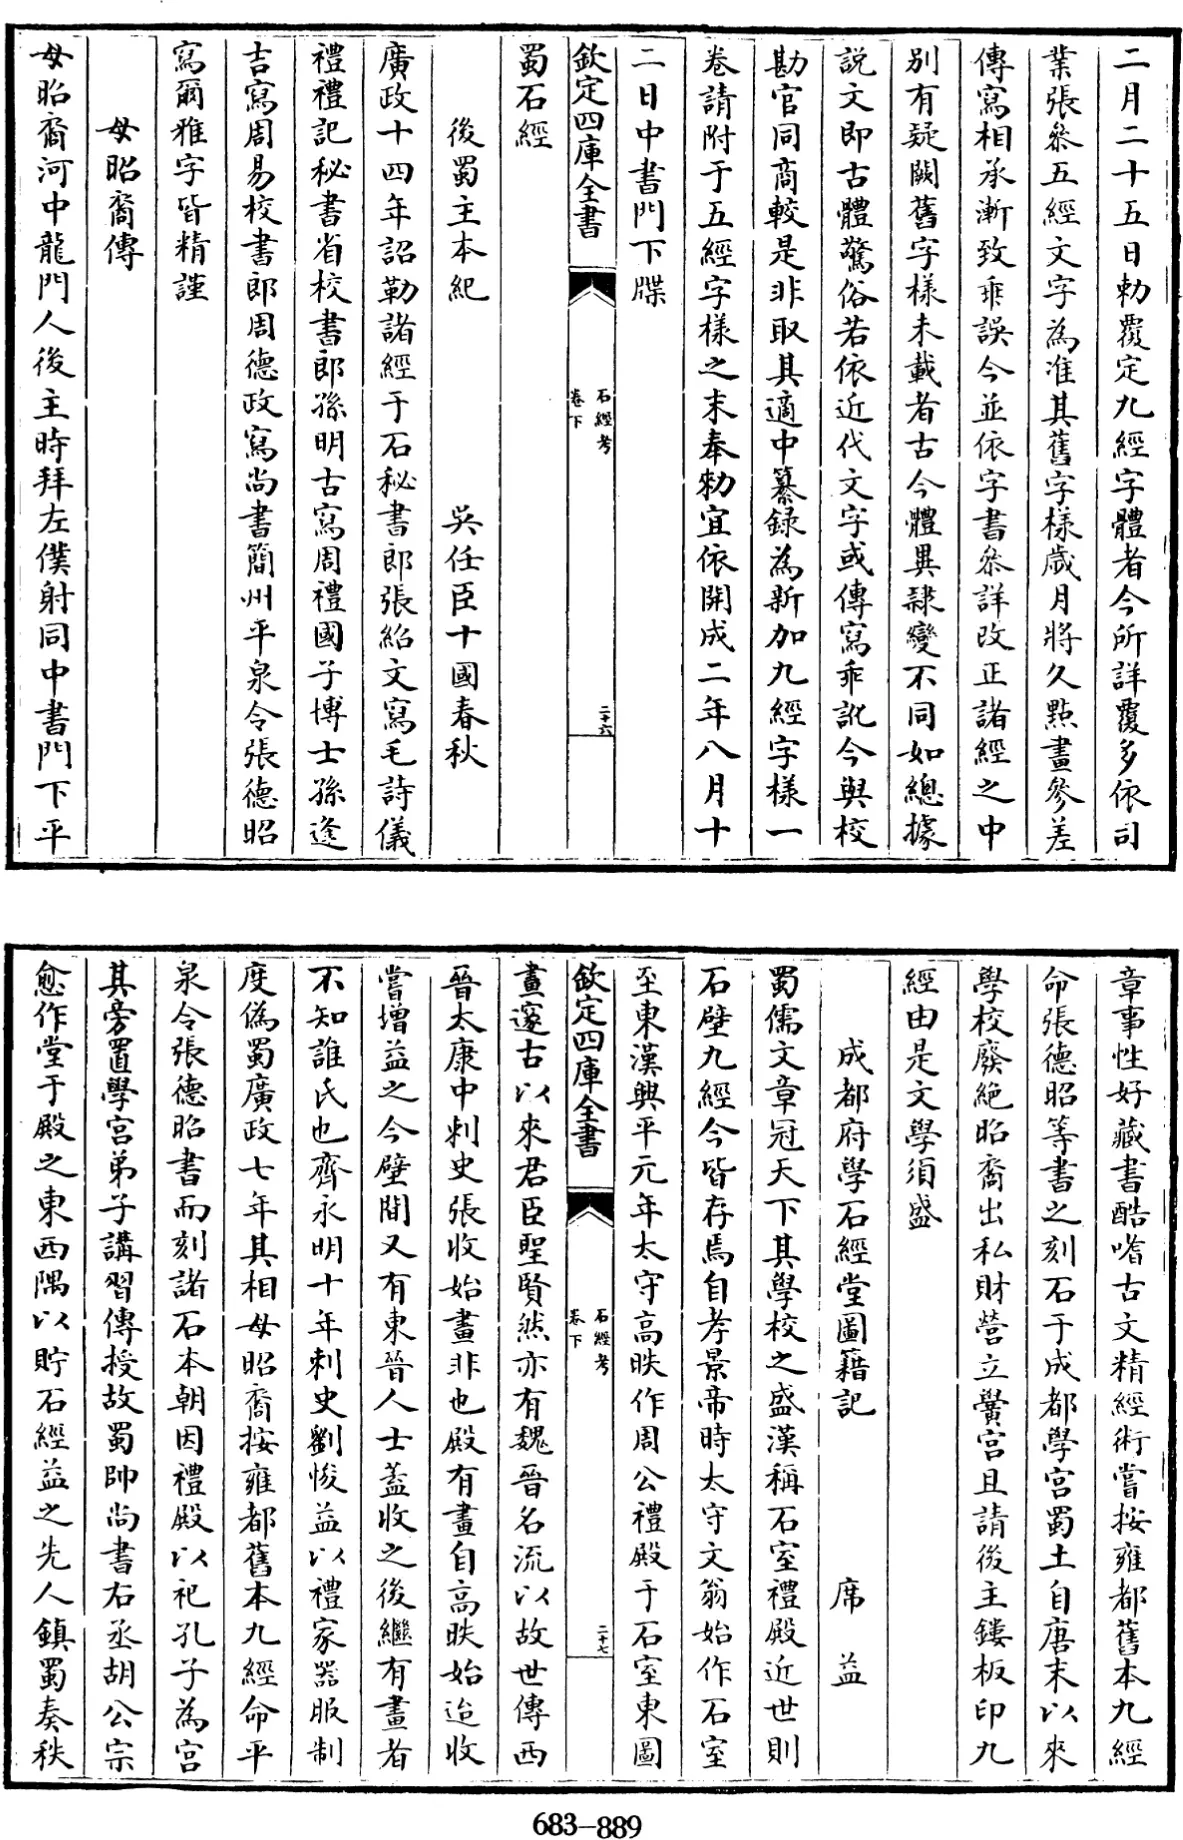 二月二十五日勅覆定九經字體者今所詳覆多依司
業張叅五經文字為准其舊字樣歲月將久㸃畫參差
傳寫相承漸致乖誤今並依字書叅詳改正諸經之中
別有疑闕舊字樣未載者古今體異隸變不同如總據
説文即古體驚俗若依近代文字或傳寫乖訛今與校
勘官同商較是非取其適中纂録為新加九經字樣一
卷請附于五經字樣之末奉勅宜依開成二年八月十
二日中書門下牒
欽定四庫全書
石經考
卷下
二十六
蜀石經
後蜀主本紀
吳任臣十國春秋
廣政十四年詔勒諸經于石秘書郎張紹文寫毛詩儀
禮禮記秘書省校書郎孫朋古寫周禮國子博士孫逢
吉寫周易校書郎周德政寫尚書簡州平泉令張德昭
寫爾雅字皆精謹
母昭裔傳
母昭裔河中龍門人後主時拜左僕射同中書門下平
章事性好藏書酷嗜古文精經術嘗按雍都舊本九經
命張德昭等書之刻石于成都學宮蜀土自唐末以來
學校廢絶昭裔出私財營立黌宮且請後主鏤板印九
經由是文學須盛
成都府學石經堂圖籍記
席益
蜀儒文章冠天下其學校之盛漢稱石室禮殿近世則
石壁九經今皆存焉自孝景帝時太守文翁始作石室
至東漢興平元年太守高眹作周公禮殿于石室東圖
欽定四庫全書
石經考
卷下
二十七
畫邃古以來君臣聖賢然亦有魏晉名流以故世傳西
晉太康中刺史張收始畫非也殿有畫自高眹始迨收
嘗增益之今壁間又有東晉人士蓋收之後繼有畫者
不知誰氏也齊永明十年刺史劉悛益以禮家器服制
度偽蜀廣政七年其相母昭裔按雍都舊本九經命平
泉令張德昭書而刻諸石本朝因禮殿以祀孔子為宮
其旁置學官弟子講習傳授故蜀帥尚書右丞胡公宗
愈作堂于殿之東西隅以貯石經益之先人鎮蜀奏秩
683–889